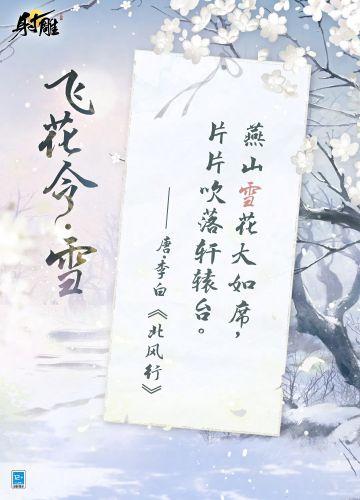 射雕
飞花令·雪
燕山雪花大如席，
片片吹落轩辕台。
——唐·李白《北风行》
12+